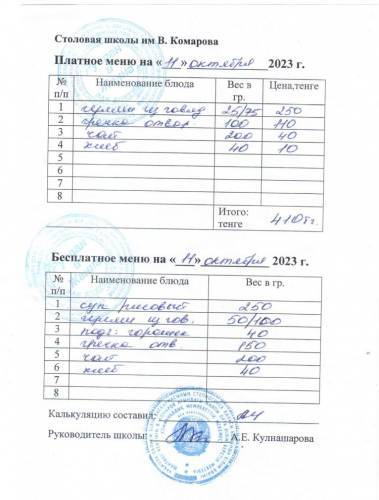 Столовая школы им В. Комарова
Платное меню на « 11 » октября 2023 г.
№ п/п Наименование блюда Вес в гр. Цена,тенге
1 гуляш из говяд 25/75 250
2 гречка отвар 100 110
3 чай 200 40
4 хлеб 40 10
5
6
7
8
Итого: тенге 410тг.
Бесплатное меню на « 11 » октября 2023 г.
№ п/п Наименование блюда Вес в гр.
1 суп рисовый 250
2 гуляш из гов. 50/100
3 подг: горошек 40
4 гречка отв 150
5 чай 200
6 хлеб 40
7
8
Калькуляцию составил:
Руководитель школы А.Е. Кулнашарова